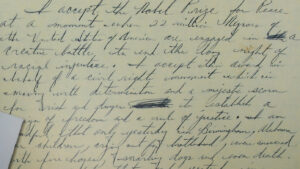 I accept the Nobel Prize for Peace
at a moment when 22 million Negroes of
the United States of America are engaged in a
creative battle to end the long night of
racial injustice. I accept this award in
behalf of a civil rights movement which is
moving with determination and a majestic scorn
for risk and danger to establish a
reign of freedom and a rule of justice. I am
mindful that only yesterday in Birmingham, Alabama
our children, crying out for brotherhood, were answered
with fire hoses, snarling dogs and even death.